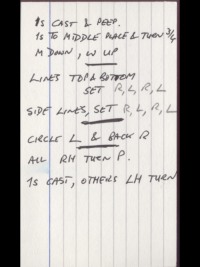 1s CAST & PEEP.
1s TO MIDDLE PLACE & TURN 3/4
M DOWN, W UP
LINES TOP & BOTTOM
SET R, L, R, L
SIDE LINES, SET R, L, R, L
CIRCLE L & BACK R
ALL RH TURN P.
1s CAST, OTHERS LH TURN